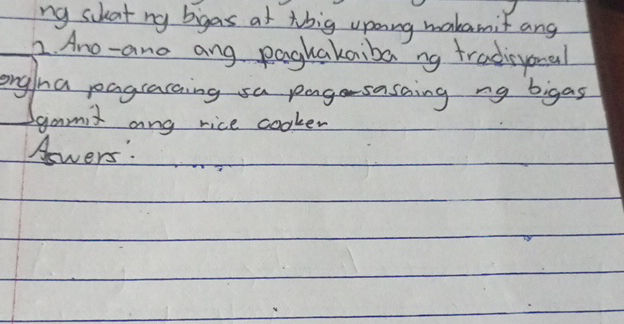 ng sukat ng bigas at tubig upang makamit ang
2. Ano-ano ang pagkakaiba ng tradisyonal
na pagsasaing sa pagsasaing ng bigas
gamit ang rice cooker
Aswers: